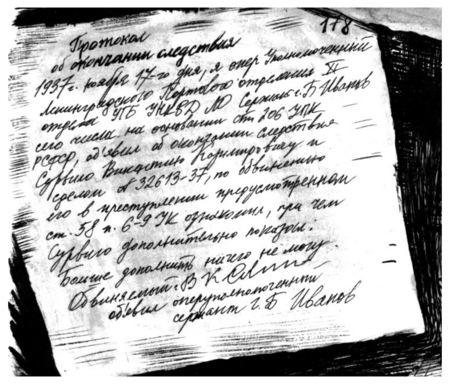 118
Протокол
об окончании следствия
1937г. ноября 17-го дня, я опер Уполномоченный
Ленинградского Портового отделения XI
отдела УГБ УНКВД ЛО Сержант г.Б Иванов
сего числа на основании ст 206 УПК
РСФСР, об'явил об окончании следствия
Сурвило Викентию Казимировичу и
сделом № 32613-37, по обвинению
его в преступлении предусмотренном
ст. 58 п. 6-9 УК ознакомил, при чем
Сурвило дополнительно показал.
Больше дополнить ничего не могу.
Обвиняемый: В К
об'явил оперуполномоченный
сержант г.Б Иванов